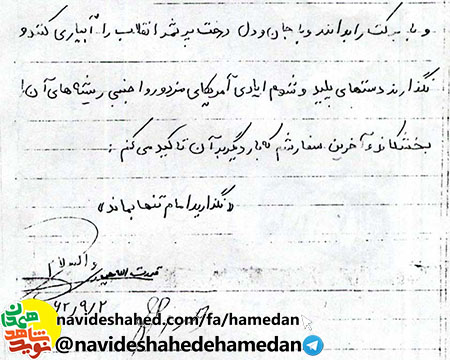 و با برکت را بدانند و با جان و دل درخت پر ثمر انقلاب را آبیاری کنند و
نگذارند دستهای پلید و شوم ایادی آمریکای مزدور و اجنبی ریشه های آن را
بخشکاند و آخرین سفارشم که بار دیگر بر آن تاکید می کنم :
«نگذارید امام تنها بماند»
والسلام
قدرت اله
۶۲/۹/۲
نوید شاهد
همدان
navideshahed.com/fa/hamedan
@navideshahedehamedan